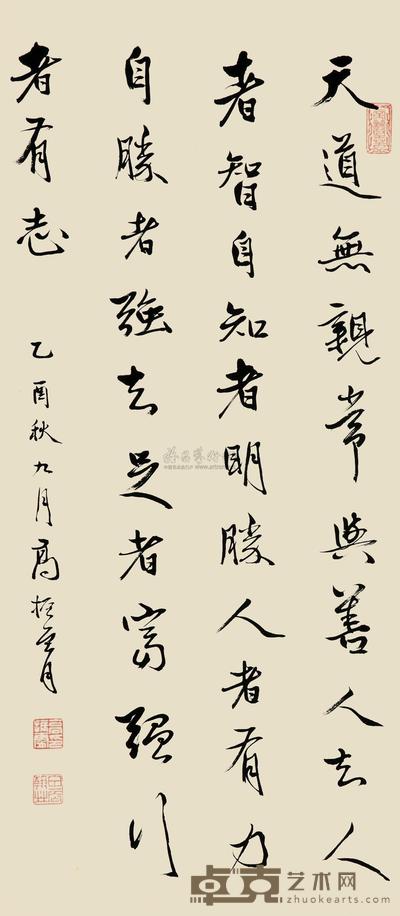 天道無親常與善人知人
者智自知者明勝人者有力
自勝者強知足者富强行
者有志
乙酉秋九月高振霄
卓克艺术网
zhuokearts.com